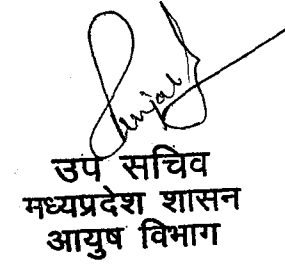 उप सचिव
मध्यप्रदेश शासन
आयुष विभाग